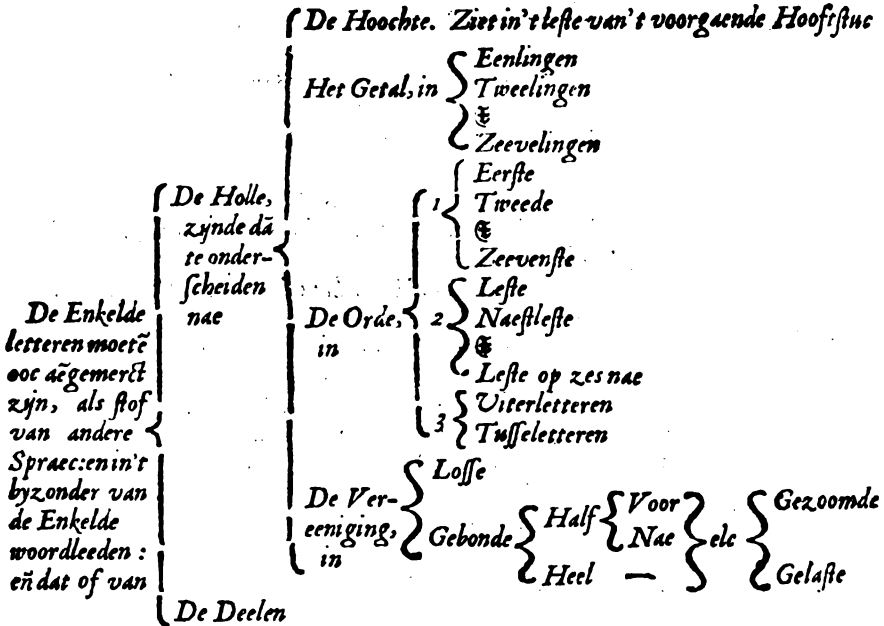 De Enkelde
letteren moetẽ
ooc aẽgemerct
zijn, als ſtof
van andere
Spraec: en in't
byzonder van
de Enkelde
woordleeden :
eñ dat of van
De Holle,
zynde dã
te onder-
ſcheiden
nae
De Hoochte. Ziet in't leſte van't voorgaende Hooftſtuc
Het Getal, in
Eenlingen
Tweelingen
&
Zeevelingen
De Orde,
in
1
Eerſte
Tweede
&
Zeevenſte
2
Leſte
Naeſtleſte
&
Leſte op zes nae
3
Uiterletteren
Tuſſeletteren
De Ver-
eeniging,
in
Loſſe
Gebonde
Half
Voor
Nae
Heel —
elc
Gezoomde
Gelaſte
De Deelen